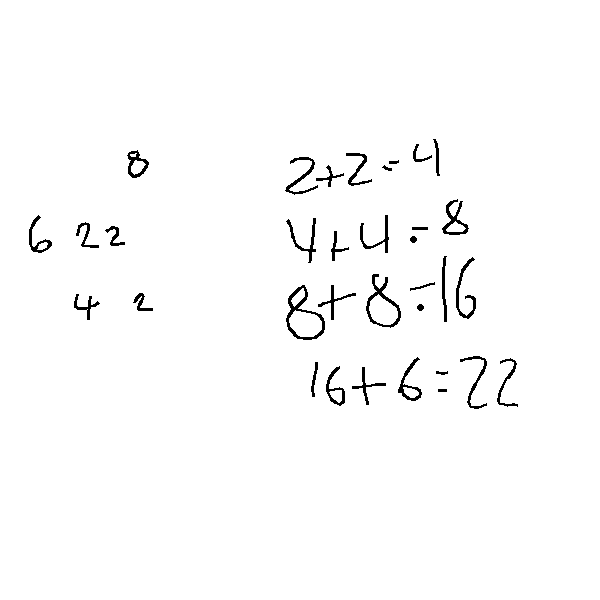 8
6 22
4 2
2+2=4
4+4=8
8+8=16
16+6=22